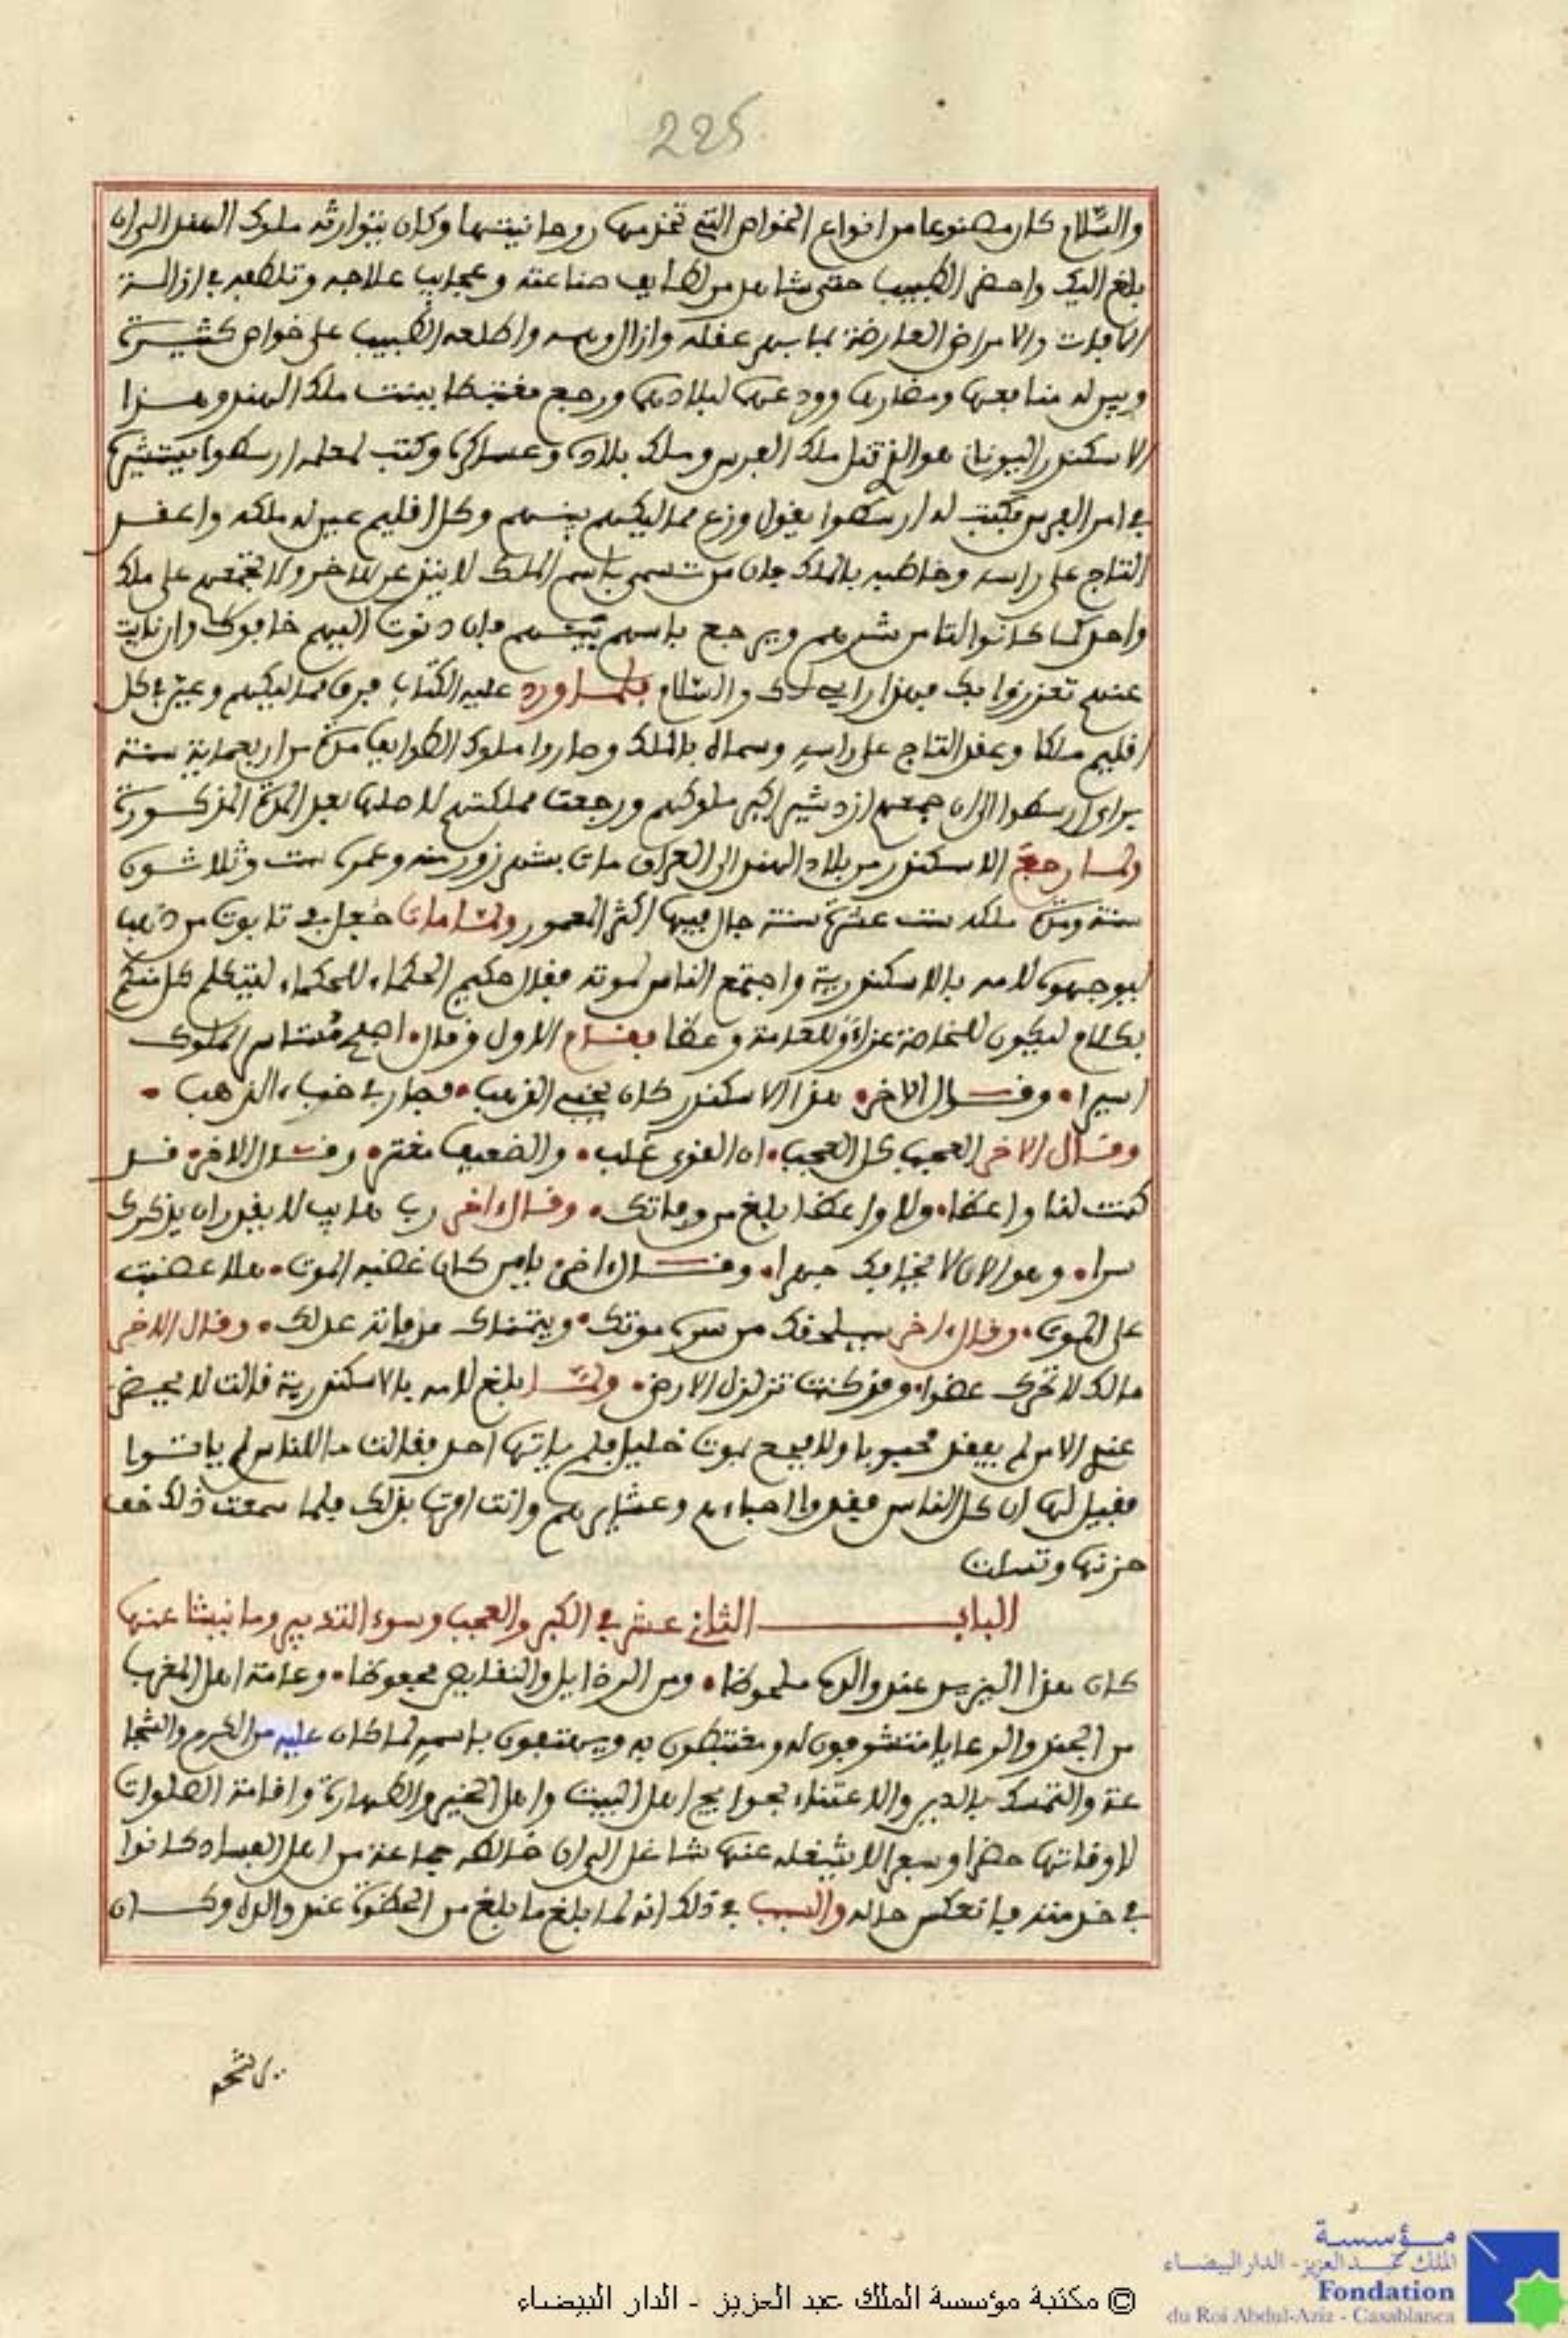 225
والسلام كان مصنوعا من انواع الخواص التي تخدمها روحانيتها وكان يتوارثه ملوك الهند الى ان
بلغ اليك واحضر الطبيب حتى شاهد من لطايف صناعته وعجايب علاجه وتلطفه في ازالة
الافات والامراض العارضة بما بهر عقله وازال وهمه واطلعه الطبيب على خواص كثيرة
وبين له منافعها ومضارها وودعهم لبلادهم ورجع مغتبطا ببنت ملك الهند وهذا
الاسكندر اليوناني هو الذي قتل ملك الفرس وملك بلاده وعساكره وكتب لمعلمه ارسطوا يستشيره
في امر الفرس فكتب له ارسطوا يقول وزع مماليكهم بينهم وكل اقليم عين له ملكه واعقد
التاج على راسه وخاطبه بالملك فان من تسمى باسم الملك لا يذعن للاخر ولا تجمعهم على ملك
واحد كما كانوا لتامن شرهم ويرجع باسهم بينهم فان دنوت اليهم خافوك وان نايت
عنهم تعززوا بك فهذا رايي لك والسلام فلما ورد عليه الكتاب فرق مماليكهم وعين في كل
اقليم ملكا وعقد التاج على راسه وسماه بالملك وصاروا ملوك الطوايف مدة من اربعماية سنة
براي ارسطوا الى ان جمعهم ازدشير اكبر ملوكهم ورجعت مملكتهم لاصلها بعد المدة المذكورة
ولما رجع الاسكندر من بلاد الهند الى العراق مات بشهرزور منه وعمره ست وثلاثون
سنة ومدة ملكه ست عشرة سنة جال فيها اكثر المعمور ولما مات جعل في تابوت من ذهب
ليوجهوه لامه بالاسكندرية واجتمع الناس لموته فقال حكيم الحكماء للحكماء ليتكلم كل منكم
بكلام ليكون للخاصة عزاء وللعامة وعظا فقام الاول وقال اصبح مستاسر الملوك
اسيرا وقال الاخر هذا الاسكندر كان يخبي الذهب فصار في خباء الذهب
وقال الاخر العجب كل العجب ان القوي غلب والضعيف مغتر وقال الاخر قد
كنت لنا واعظا ولا واعظا ابلغ من وفاتك وقال اخر رب هايب لا يقدر ان يذكرك
سرا وهو الان لا يخافك جهرا وقال اخر يا من كان غضبه الموت هلا غضبت
على الموت وقال اخر سيلحقك من سره موتك ويتمناك من فاته عدلك وقال الاخر
مالك لا تحرك عضوا وقد كنت تزلزل الارض ولما بلغ لامه بالاسكندرية قالت لا يحضر
عندي الا من لم يفقد محبوبا ولا فجع بموت خليل فلم ياتها احد فقالت ما للناس لم ياتوا
فقيل لها ان كل الناس فقدوا احباءهم وعشايرهم وانت امرت بذلك فلما سمعت ذلك خف
حزنها وتسلت
الباب الثاني عشر في الكبر والعجب وسوء التدبير وما نيشا عنها
كان هذا اليزيد عند والده ملحوظا ومن الرذايل والنقايص محفوظا وعامة اهل المغرب
من الجند والرعايا متشوفون له ومغتبطون به ويهتفون باسمه لما كان عليه من الكرم والشجا
عة والتمسك بالدين والاعتناء بحوايج اهل البيت واهل الخير والطهارة واقامة الصلوات
لاوقاتها حضرا وسفرا لا يشغله عنها شاغل الى ان خالطه جماعة من اهل الفساد كانوا
في خدمته فانعكس حاله والسبب في ذلك انه لما بلغ ما بلغ من الحظوة عند والده وكان
مؤسسة
الملك عبد العزيز - الدار البيضاء
Fondation
du Roi Abdul-Aziz - Casablanca
© مكتبة مؤسسة الملك عبد العزيز - الدار البيضاء